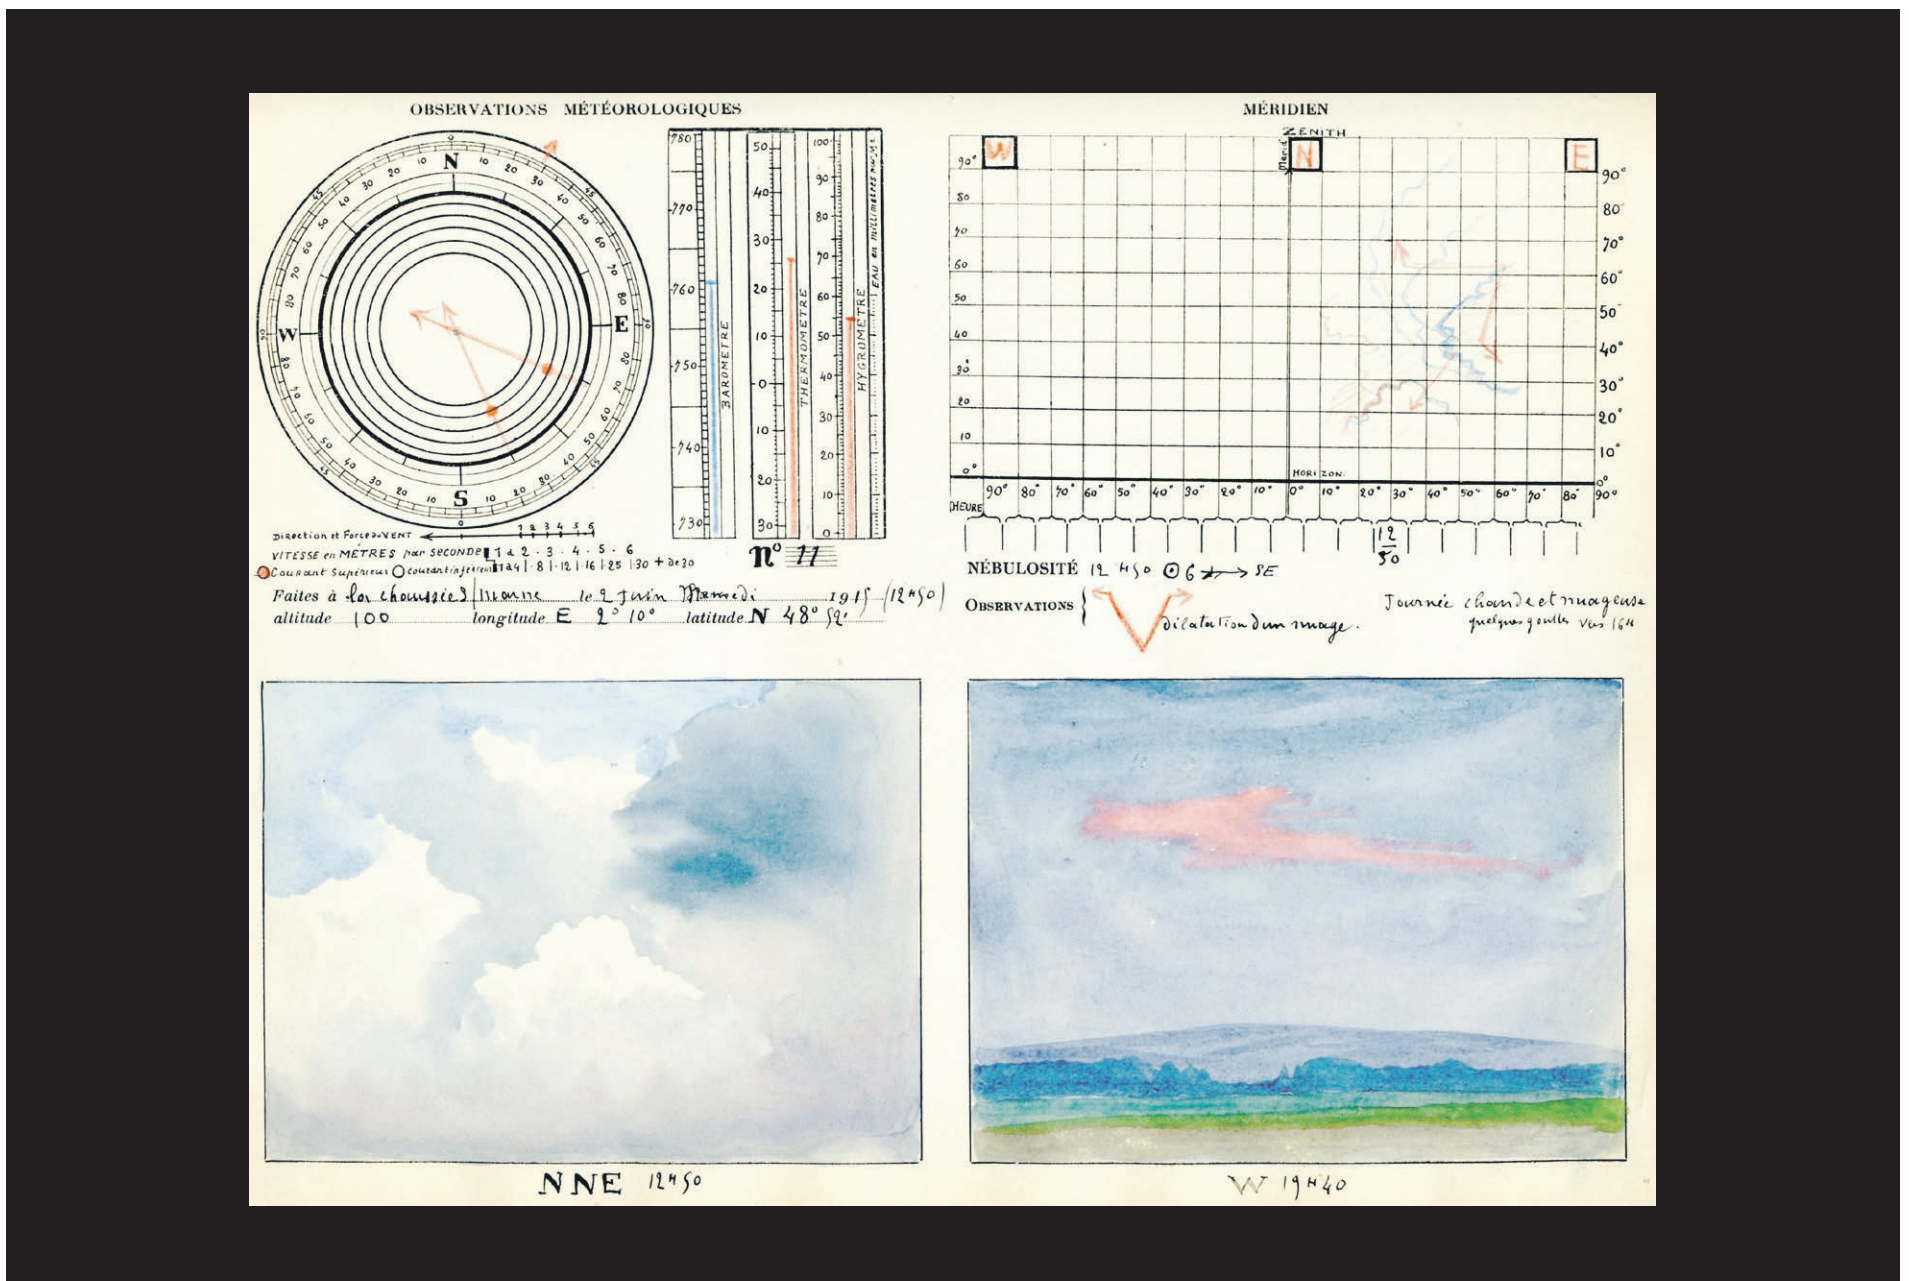 OBSERVATIONS MÉTÉOROLOGIQUES
N
10 20 30 40 50 60 70 80
E
80 70 60 50 40 30 20 10
S
10 20 30 40 50 60 70 80
W
80 70 60 50 40 30 20 10
780
770
760
750
740
730
BAROMETRE
50
40
30
20
10
0
10
20
30
THERMOMETRE
100
90
80
70
60
50
40
30
20
10
0
HYGROMETRE
EAU en millimetres
Direction et Force du VENT 1 2 3 4 5 6
VITESSE en MÈTRES par SECONDE 1 à 2 . 3 . 4 . 5 . 6
Courant Supérieur Courant inférieur 1 à 4 | . 8 | . 12 | . 16 | . 25 | . 30 + de 30
n° 11
Faites à la chaussée s/marne le 2 Juin Mercredi 1915 (12H50)
altitude 100 longitude E 2° 10° latitude N 48° 52'
MÉRIDIEN
ZENITH
Merid
W N E
90° 90°
80 80
70 70°
60 60°
50 50
40 40°
30 30°
20 20°
10 10°
0° 0°
HORIZON
90° 80° 70° 60° 50° 40° 30° 20° 10° 0° 10° 20° 30° 40° 50° 60° 70° 80° 90°
HEURE
12
50
NÉBULOSITÉ 12 H50 6 SE
OBSERVATIONS dilatation d'un nuage.
Journée chaude et nuageuse
quelques gouttes vers 16H
NNE 12H50
W 19H40